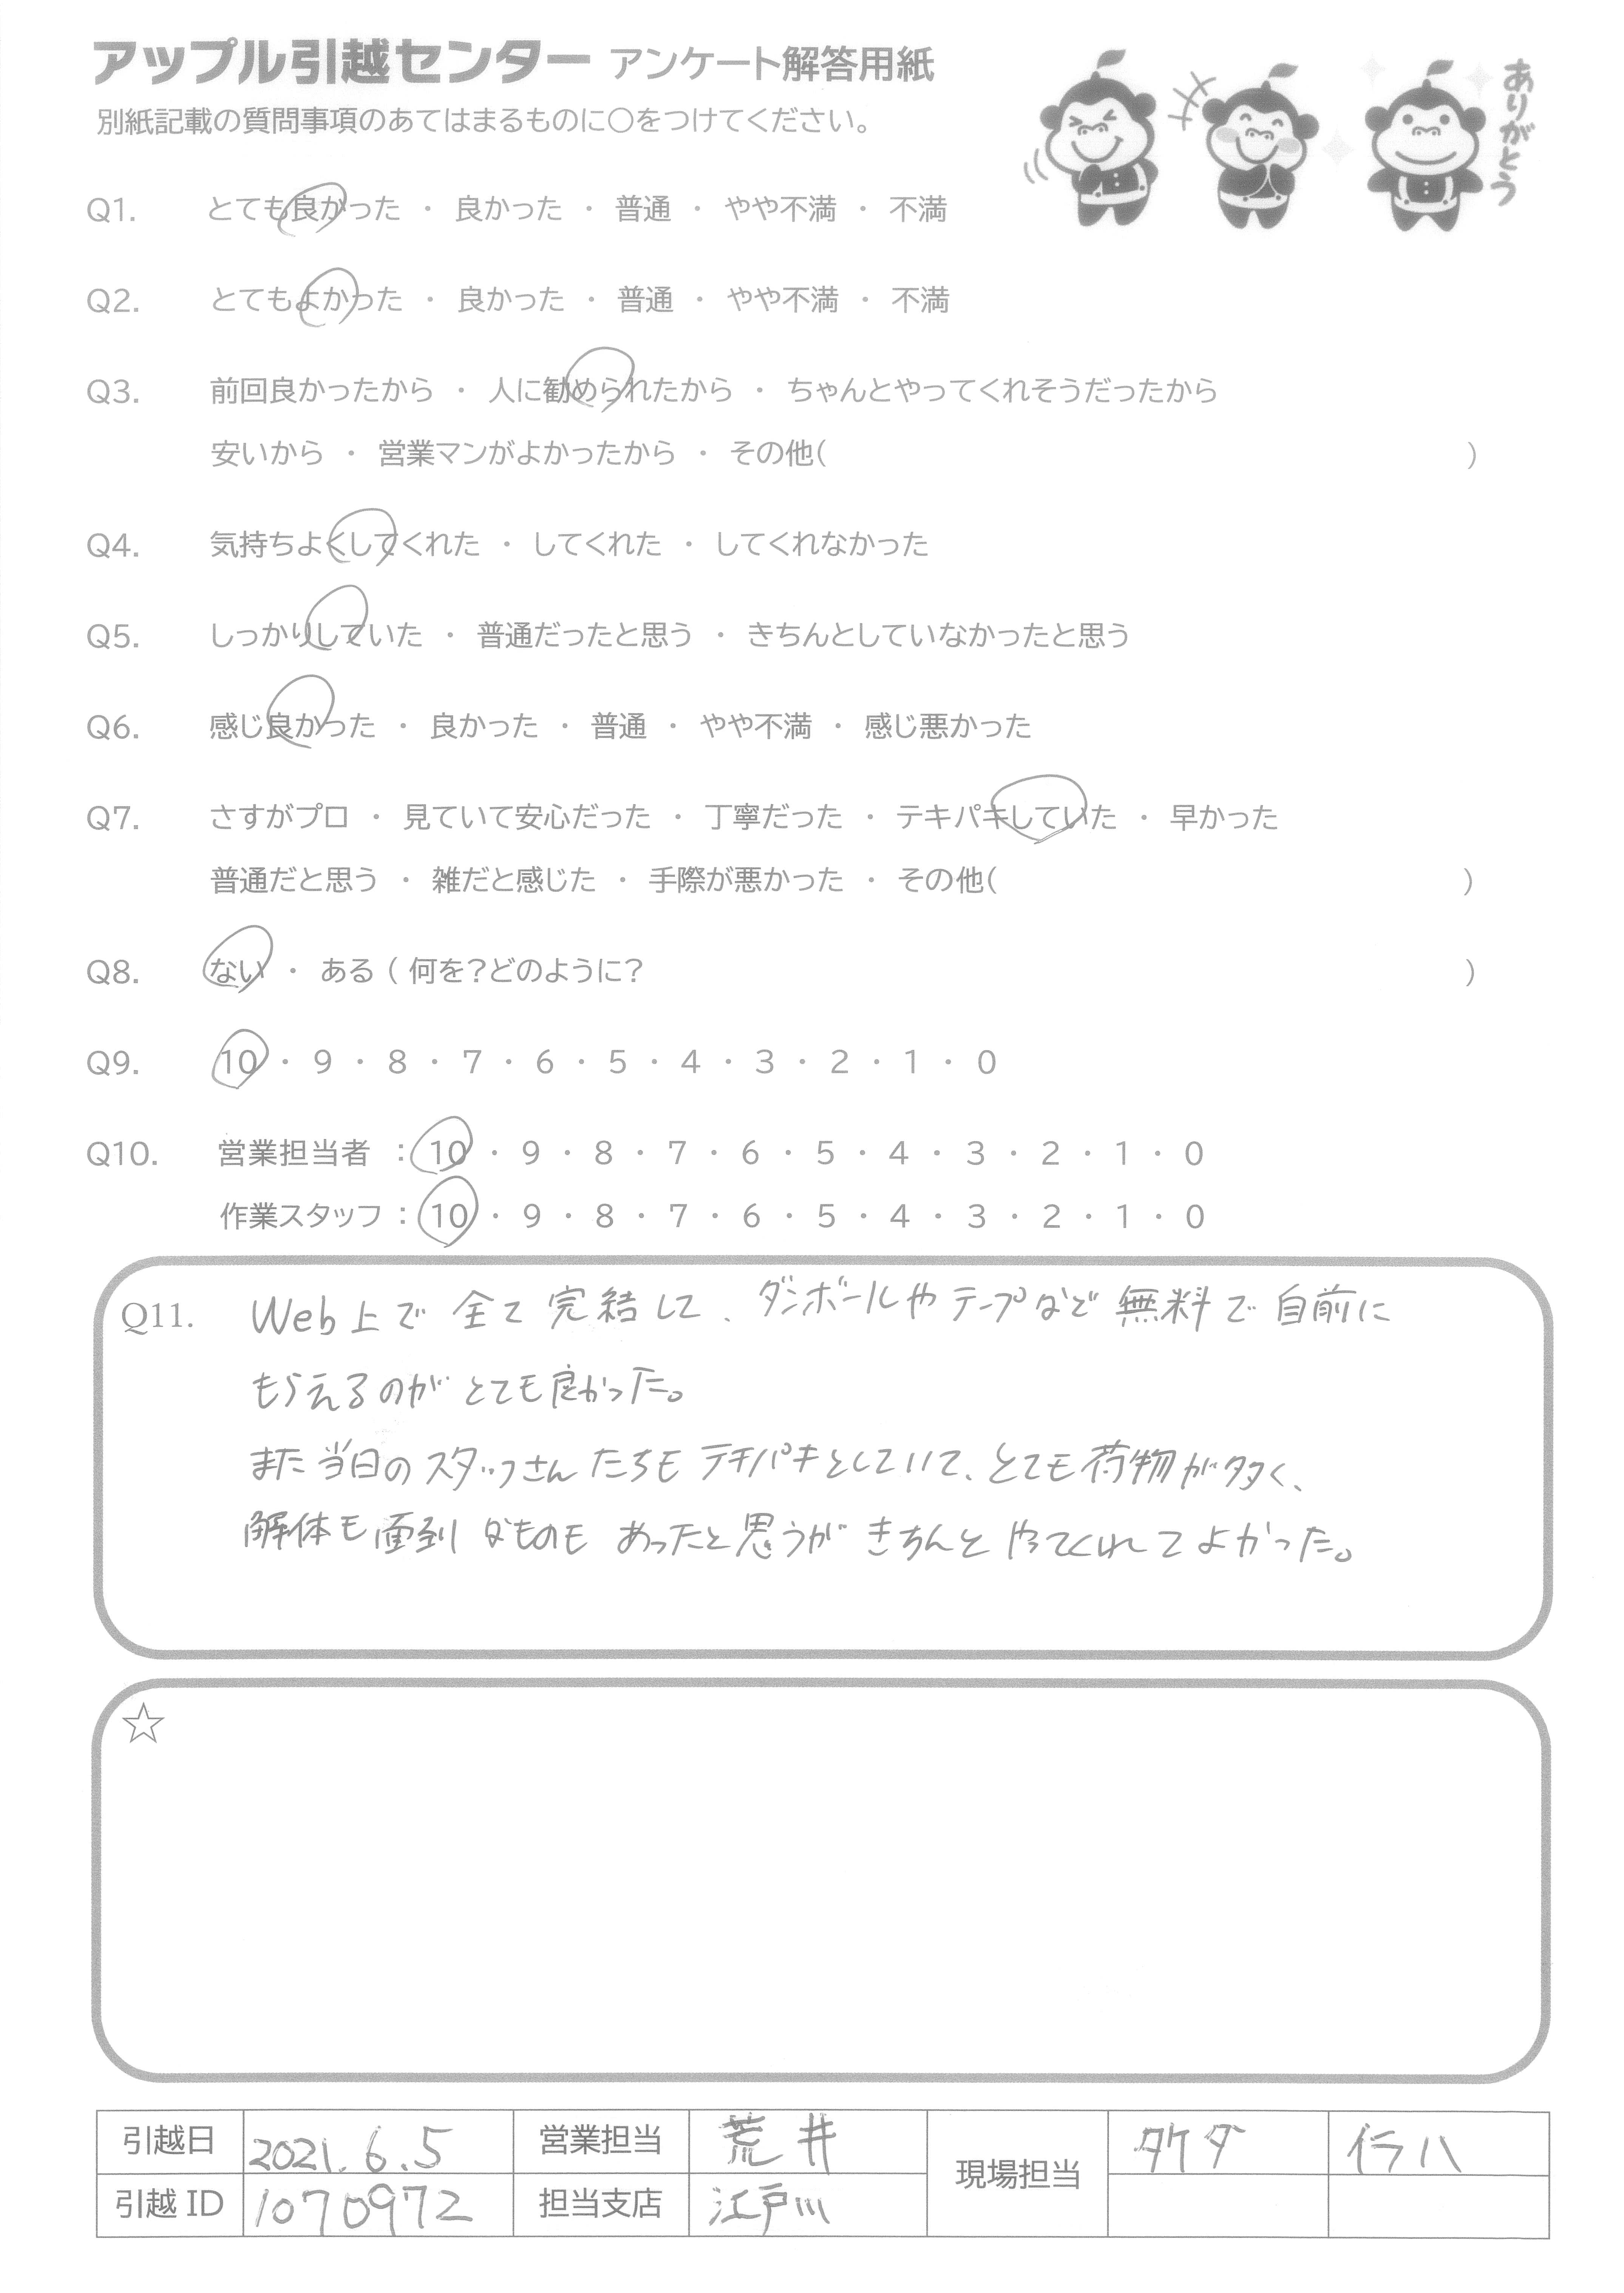 アップル引越センター アンケート解答用紙
別紙記載の質問事項のあてはまるものに○をつけてください。
ありがとう
Q1. とても良かった ・ 良かった ・ 普通 ・ やや不満 ・ 不満
Q2. とてもよかった ・ 良かった ・ 普通 ・ やや不満 ・ 不満
Q3. 前回良かったから ・ 人に勧められたから ・ ちゃんとやってくれそうだったから
安いから ・ 営業マンがよかったから ・ その他( )
Q4. 気持ちよくしてくれた ・ してくれた ・ してくれなかった
Q5. しっかりしていた ・ 普通だったと思う ・ きちんとしていなかったと思う
Q6. 感じ良かった ・ 良かった ・ 普通 ・ やや不満 ・ 感じ悪かった
Q7. さすがプロ ・ 見ていて安心だった ・ 丁寧だった ・ テキパキしていた ・ 早かった
普通だと思う ・ 雑だと感じた ・ 手際が悪かった ・ その他( )
Q8. ない ・ ある ( 何を?どのように? )
Q9. 10 ・ 9 ・ 8 ・ 7 ・ 6 ・ 5 ・ 4 ・ 3 ・ 2 ・ 1 ・ 0
Q10. 営業担当者 : 10 ・ 9 ・ 8 ・ 7 ・ 6 ・ 5 ・ 4 ・ 3 ・ 2 ・ 1 ・ 0
作業スタッフ : 10 ・ 9 ・ 8 ・ 7 ・ 6 ・ 5 ・ 4 ・ 3 ・ 2 ・ 1 ・ 0
Q11. Web上で全て完結して、ダンボールやテープなど無料で自前に
もらえるのがとても良かった。
また当日のスタッフさんたちもテキパキとしていて、とても荷物が多く、
解体も面倒なものもあったと思うがきちんとやってくれてよかった。
☆
引越日 2021.6.5 営業担当 荒井 現場担当 タケダ イラハ
引越ID 1070972 担当支店 江戸川